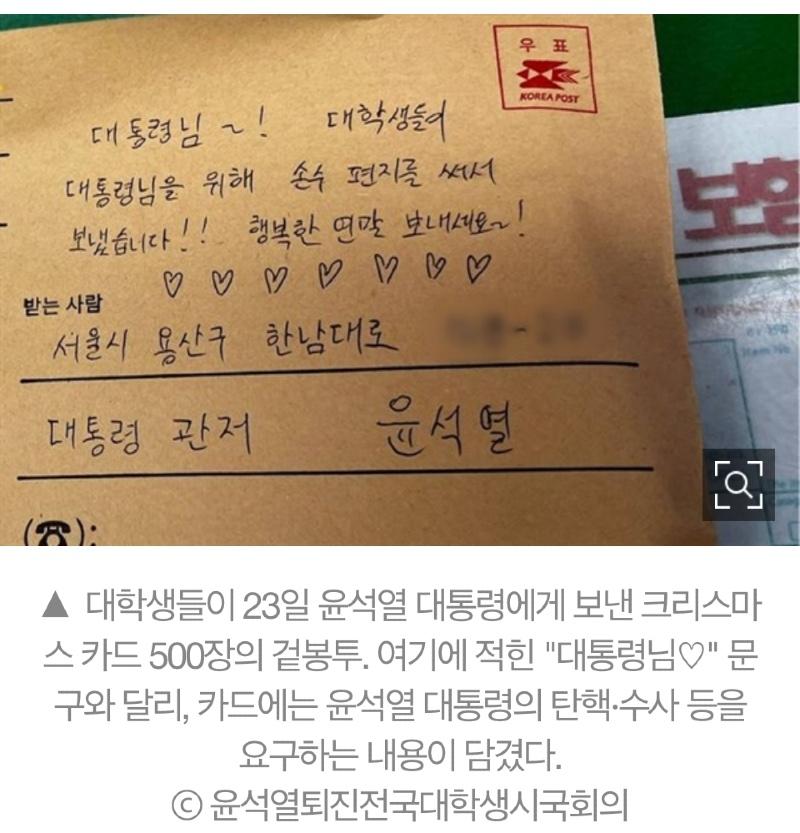 우 표
KOREA POST
대통령님 ~! 대학생들이
대통령님을 위해 손수 편지를 써서
보냈습니다!! 행복한 연말 보내세요~!
♡ ♡ ♡ ♡ ♡ ♡ ♡
받는 사람
서울시 용산구 한남대로
대통령 관저 윤석열
(☎):
보험
▲ 대학생들이 23일 윤석열 대통령에게 보낸 크리스마
스 카드 500장의 겉봉투. 여기에 적힌 "대통령님♡" 문
구와 달리, 카드에는 윤석열 대통령의 탄핵·수사 등을
요구하는 내용이 담겼다.
ⓒ 윤석열퇴진전국대학생시국회의